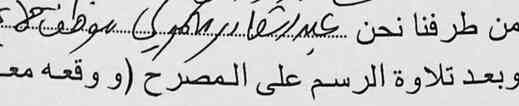 من طرفنا نحن عبد القادر ماموني موظف
وبعد تلاوة الرسم على المصرح (و وقعه مع